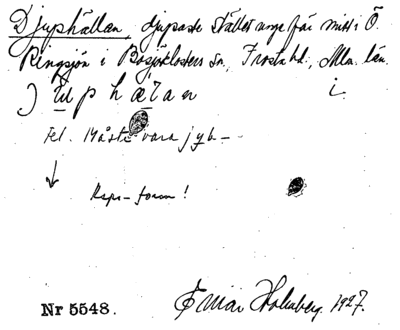 Djuphällan, djupaste stället ungefär mitt i Ö.
Ringsjön i Bosjöklosters sn, Frosta hd., Mlm. län.
i.
Fel. Måste vara jyb-
↓
Rspr-form!
Nr 5548. Einar Holmberg. 1927.